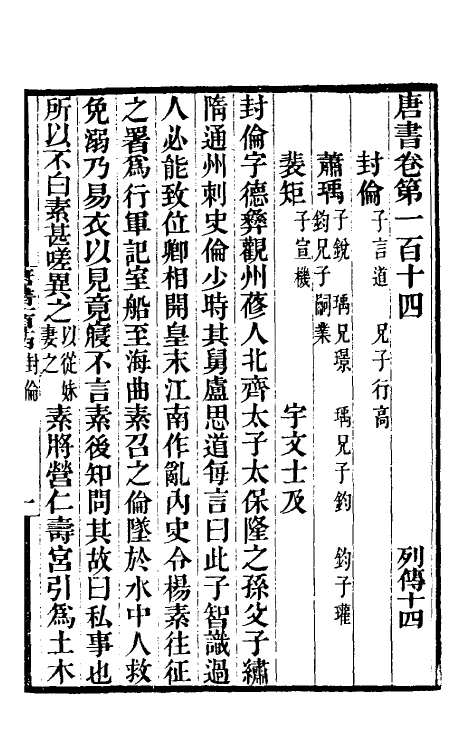 唐書卷第一百十四 列傳十四
封倫 子言道 兄子行高
蕭瑀 子銳 瑀兄璟 瑀兄子鈞 鈞子瓘 鈞兄子嗣業
裴矩 子宣機 宇文士及
封倫字德彝觀州蓚人北齊太子太保隆之孫父子繡
隋通州刺史倫少時其舅盧思道每言曰此子智識過
人必能致位卿相開皇末江南作亂內史令楊素往征
之署爲行軍記室船至海曲素召之倫墜於水中人救
免溺乃易衣以見竟寢不言素後知問其故曰私事也
所以不白素甚嗟異之以從妹妻之素將營仁壽宮引爲土木
封倫 一